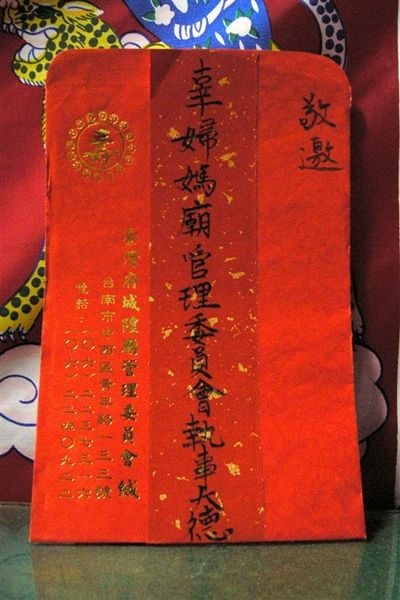 敬邀
辜婦媽廟管理委員會執事大德
臺灣府城隍廟管理委員會緘
台南市中西區青年路一三三號
電話：(〇六)二二三七三一六
(〇六)二二四〇九二二